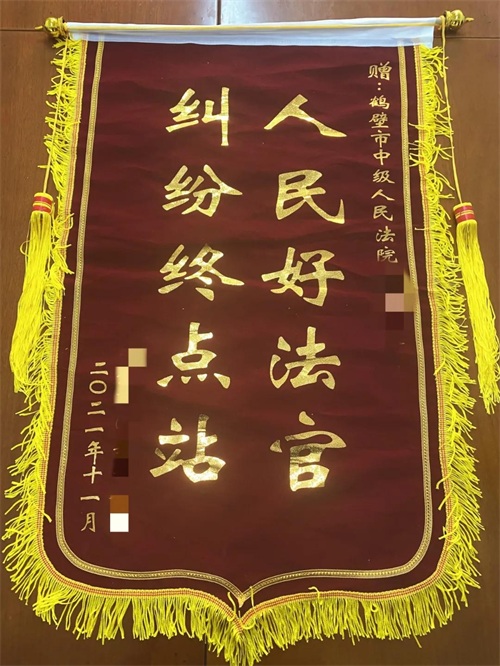 赠:鹤壁市中级人民法院
人民好法官
纠纷终点站
二〇二一年十一月